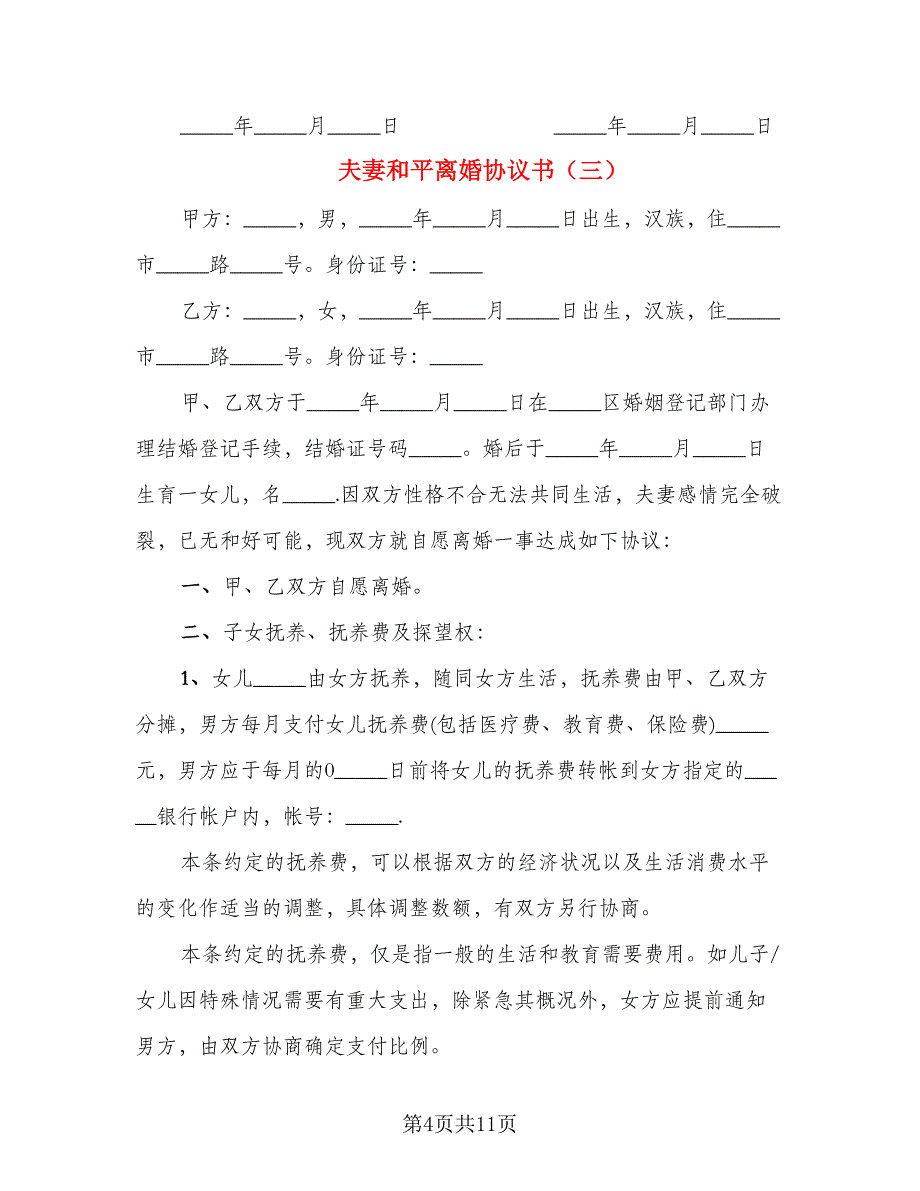 _____年_____月_____日 _____年_____月_____日
夫妻和平离婚协议书（三）
甲方：_____，男，_____年_____月_____日出生，汉族，住_____
市_____路_____号。身份证号：_____
乙方：_____，女，_____年_____月_____日出生，汉族，住_____
市_____路_____号。身份证号：_____
甲、乙双方于_____年_____月_____日在_____区婚姻登记部门办
理结婚登记手续，结婚证号码_____。婚后于_____年_____月_____日
生育一女儿，名_____.因双方性格不合无法共同生活，夫妻感情完全破
裂，已无和好可能，现双方就自愿离婚一事达成如下协议：
一、甲、乙双方自愿离婚。
二、子女抚养、抚养费及探望权：
1、女儿_____由女方抚养，随同女方生活，抚养费由甲、乙双方
分摊，男方每月支付女儿抚养费(包括医疗费、教育费、保险费)_____
元，男方应于每月的0_____日前将女儿的抚养费转帐到女方指定的___
__银行帐户内，帐号：_____.
本条约定的抚养费，可以根据双方的经济状况以及生活消费水平
的变化作适当的调整，具体调整数额，有双方另行协商。
本条约定的抚养费，仅是指一般的生活和教育需要费用。如儿子/
女儿因特殊情况需要有重大支出，除紧急其概况外，女方应提前通知
男方，由双方协商确定支付比例。
第4页共11页